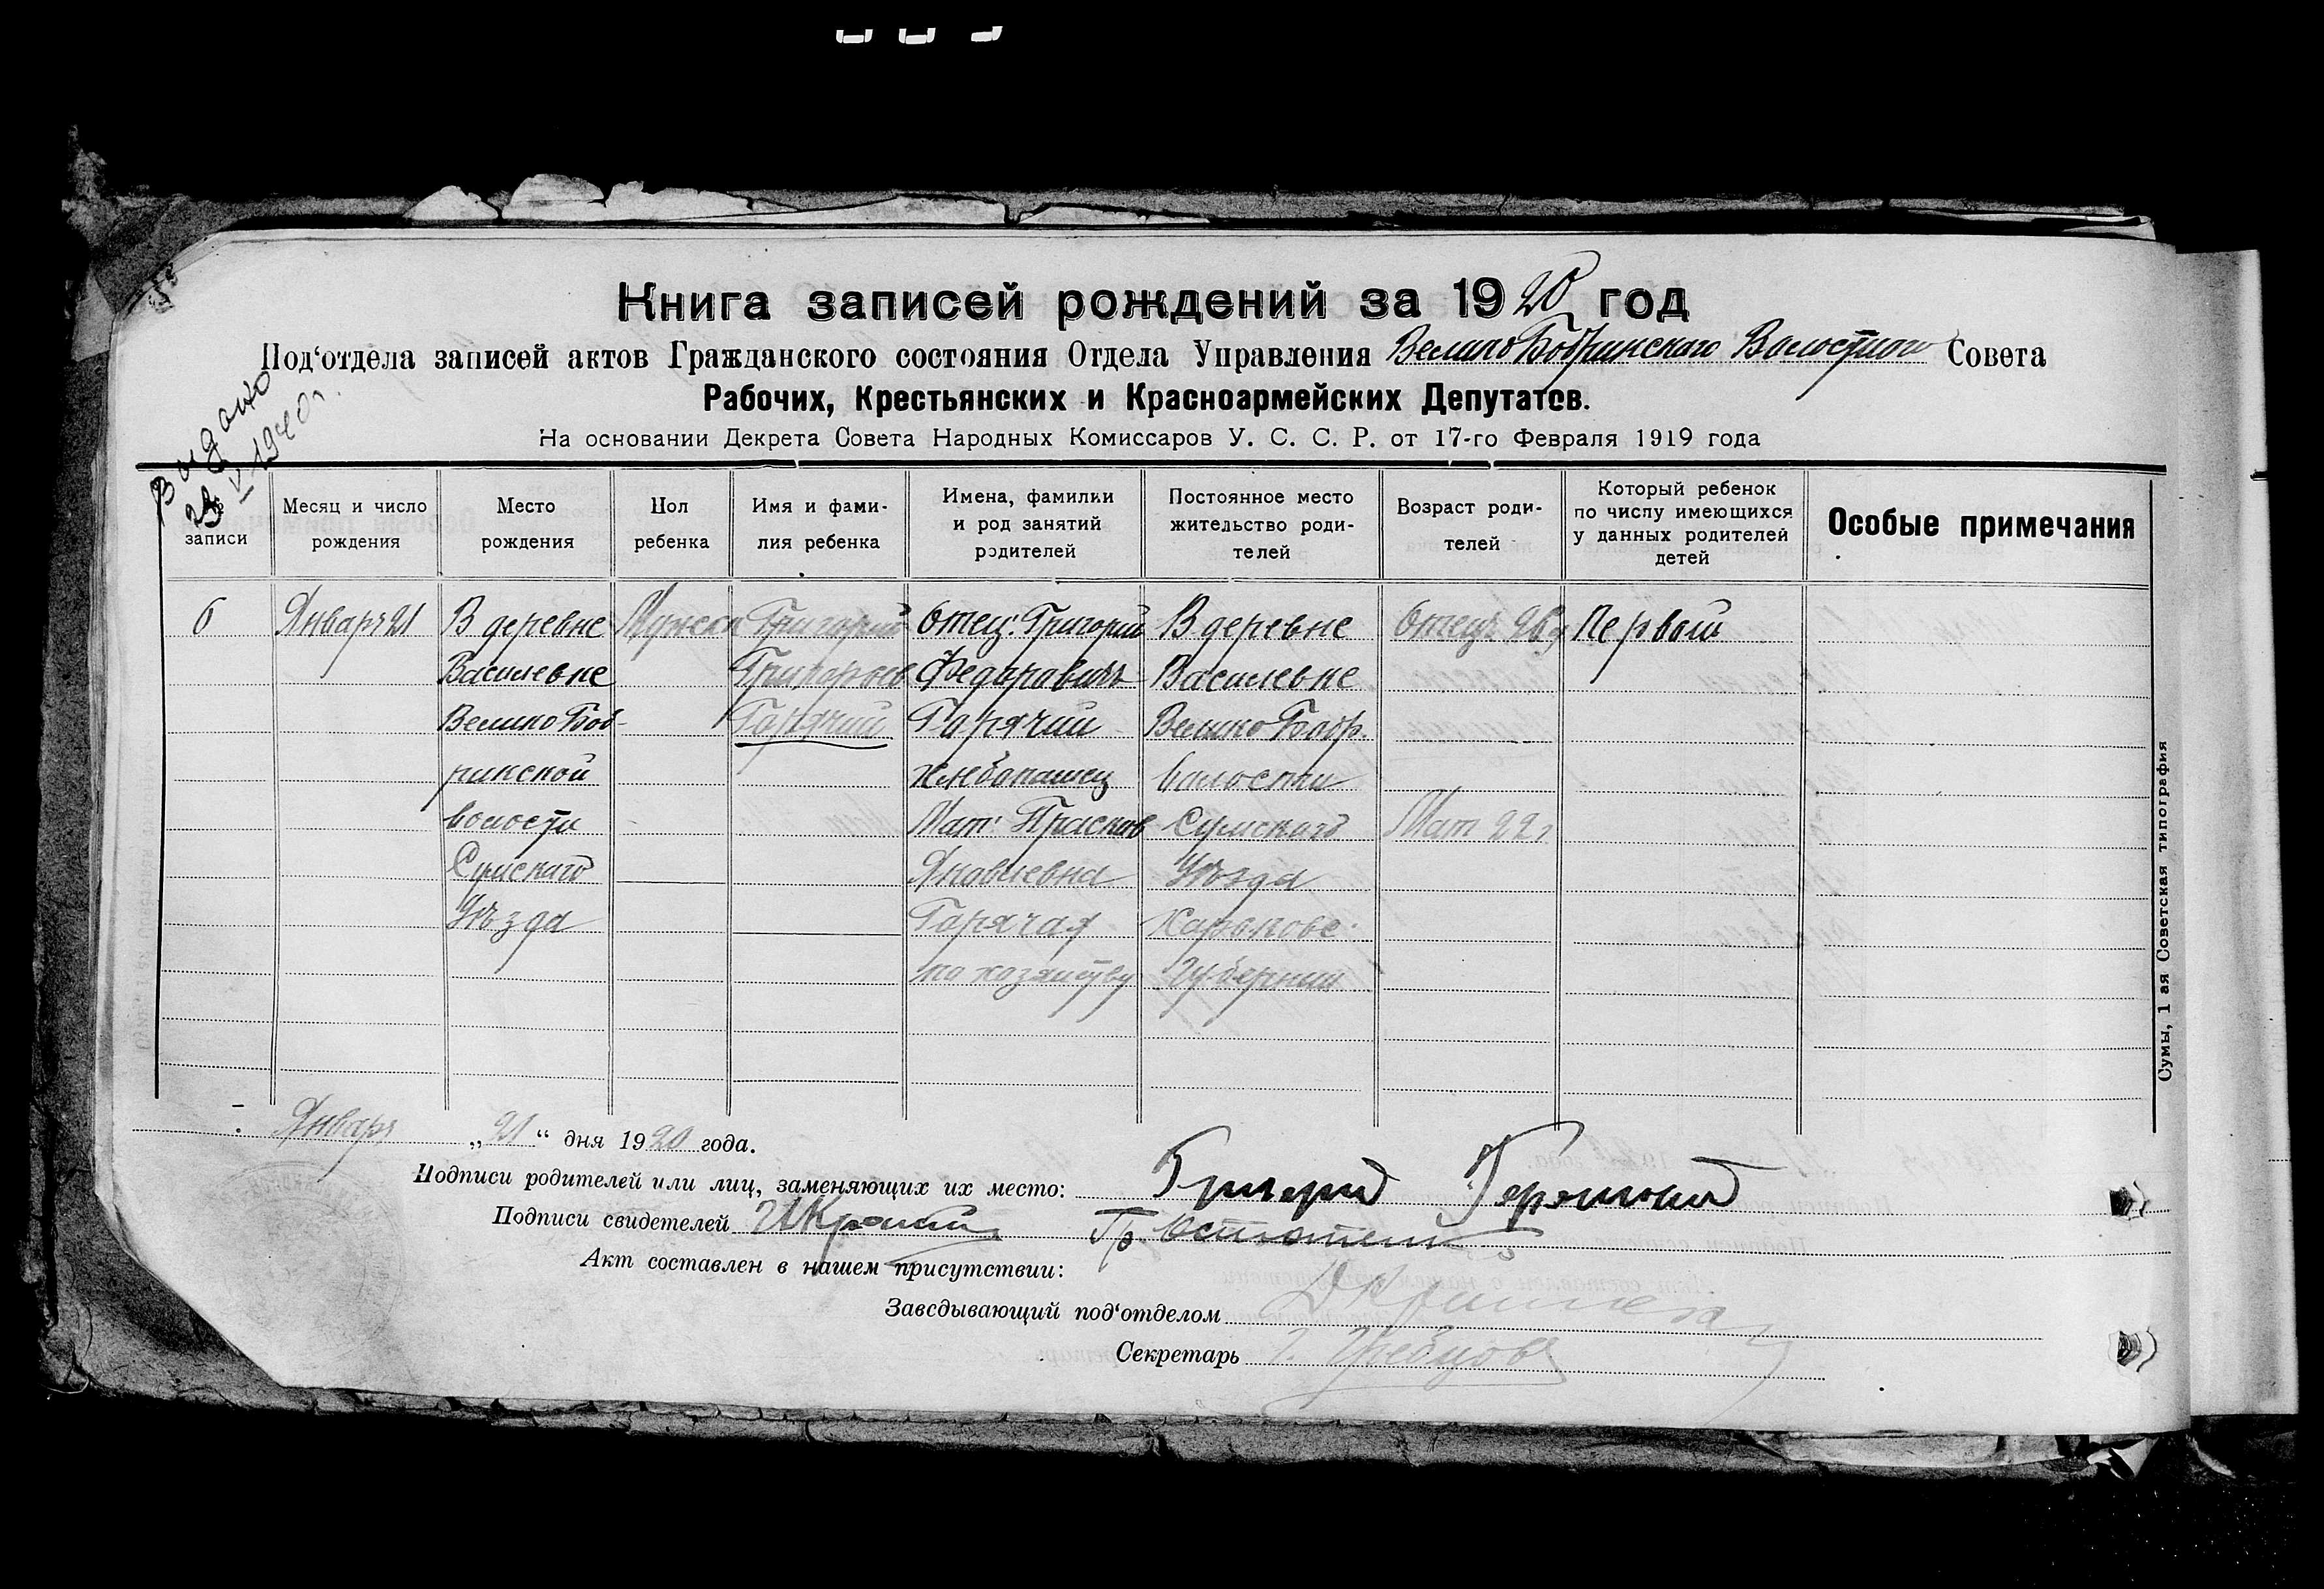 Книга записей рождений за 1920 год
Под‘отдела записей актов Гражданского состояния Отдела Управления Велико Бобринского Волостного Совета
Рабочих, Крестьянских и Красноармейских Депутатов.
На основании Декрета Совета Народных Комиссаров У. С. С. Р. от 17-го Февраля 1919 года
Выдано
V 1940 г.
записи
Месяц и число рождения
Место рождения
Пол ребенка
Имя и фами-
лия ребенка
Имена, фамилии
и род занятий
родителей
Постоянное место
жительство роди-
телей
Возраст роди-
телей
Который ребенок
по числу имеющихся
у данных родителей
детей
Особые примечания
6
Январь 21
В деревне
Василевке
Велико Боб-
ринской
волости
Сумскаго
Уѣзда
Мужск
Григорий
Григорьев
Горячий
Отец: Григорий
Федоравичъ
Горячий
хлебопашец
Мат: Прасков
Яковлевна
Горячая
по хозяйству
В деревне
Василевке
Велико Бобр.
волости
Сумскаго
Уѣзда
Харьковс.
Губернии
Отецъ 26 г
Мат 22 г
Первый
Январь „21“ дня 1920 года.
Подписи родителей или лиц, заменяющих их место: Григорий
Подписи свидетелей
Акт составлен в нашем присутствии:
Заведывающий под‘отделом
Секретарь
Сумы, 1 ая Советская типография